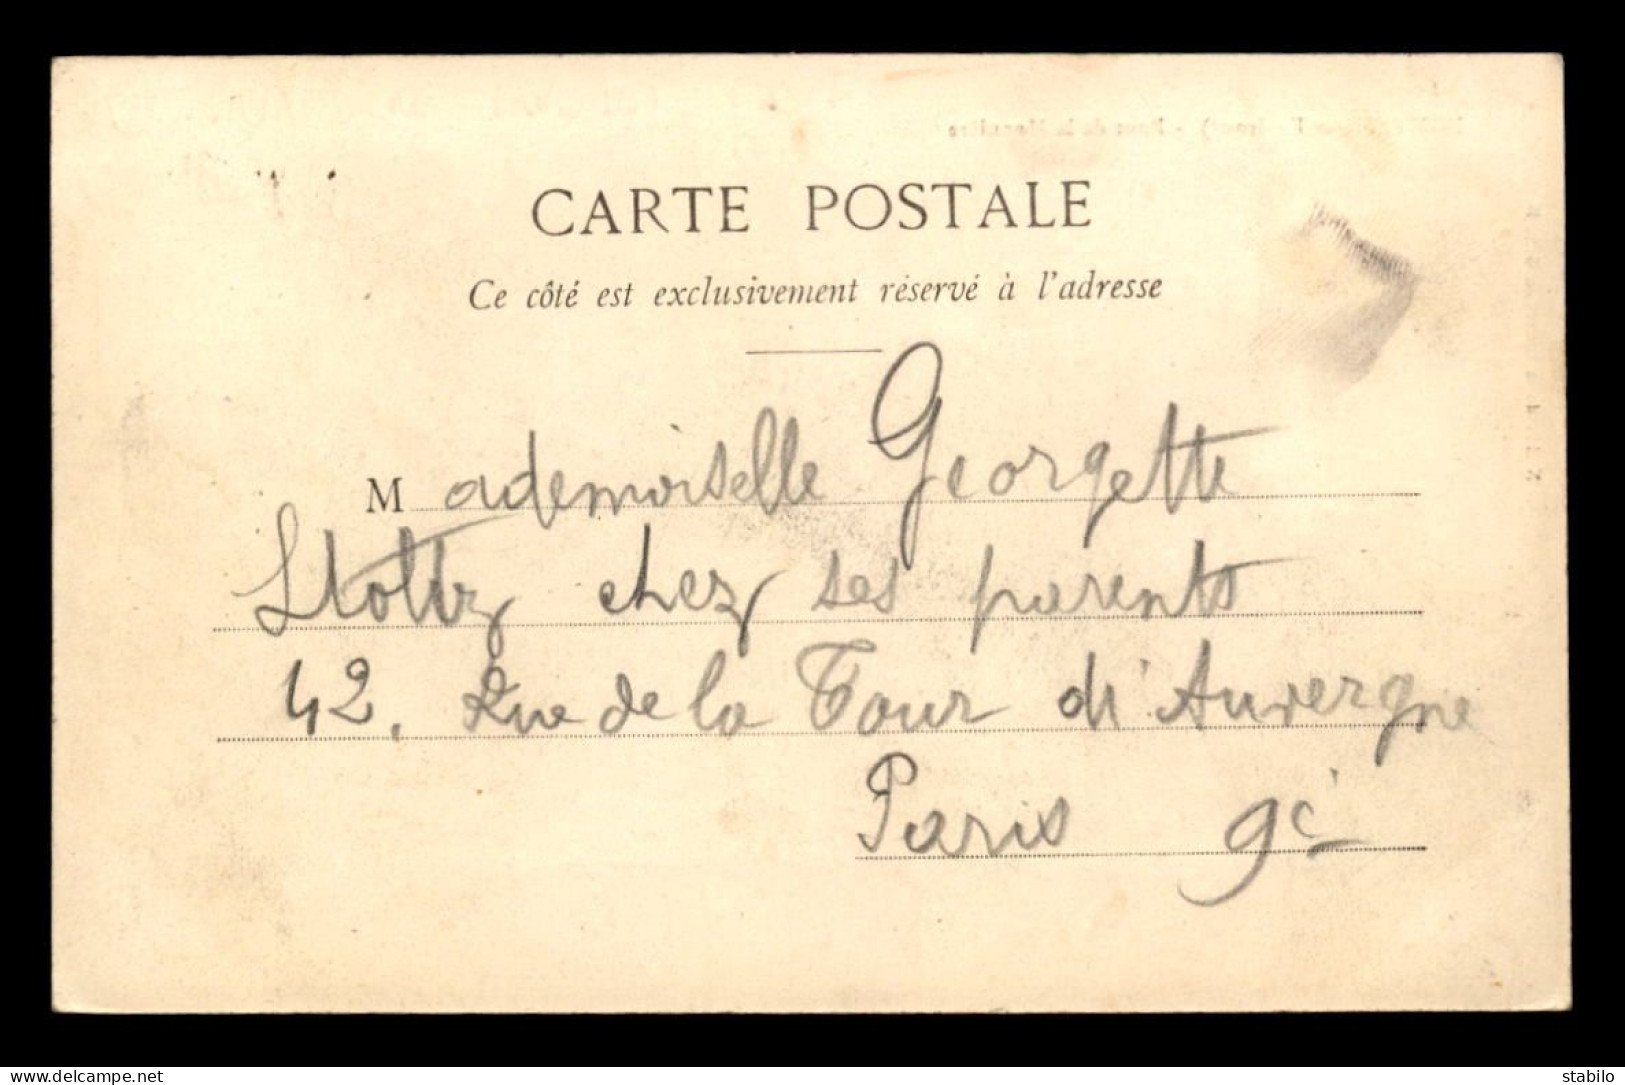 CARTE POSTALE
Ce côté est exclusivement réservé à l'adresse
Mademoiselle Georgette
Stoltz chez ses parents
42, Rue de la Tour d'Auvergne
Paris 9e
www.delcampe.net
stabilo